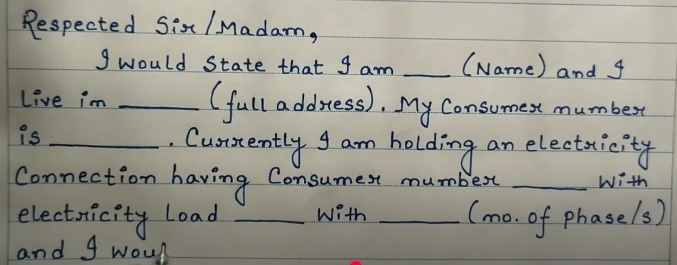 Respected Sir/Madam,
I would state that I am ____ (Name) and I
Live in ______ (full address). My Consumer number
is ________. Currently I am holding an electricity
Connection having Consumer number ______ with
electricity load _____ with ______ (no. of phase/s)
and I wou